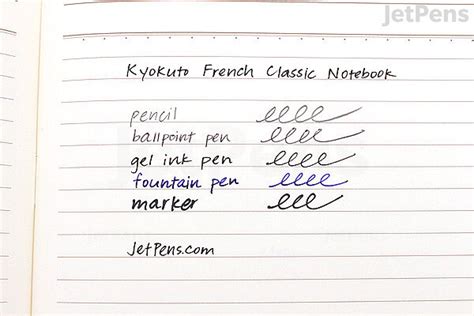 JetPens
Kyokuto French Classic Notebook
pencil
ballpoint pen
gel ink pen
fountain pen
marker
JetPens.com